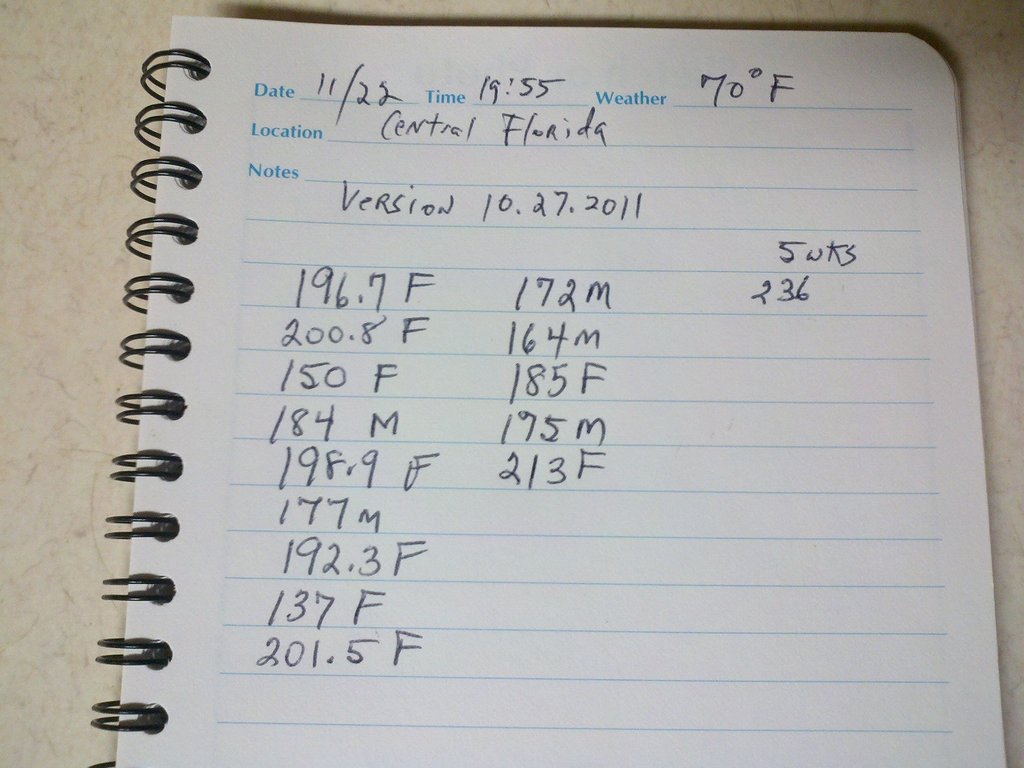 Date 11/22 Time 19:55 Weather 70°F
Location Central Florida
Notes
Version 10.27.2011
5 wks
196.7 F 172 M 236
200.8 F 164 M
150 F 185 F
184 M 175 M
198.9 F 213 F
177 M
192.3 F
137 F
201.5 F